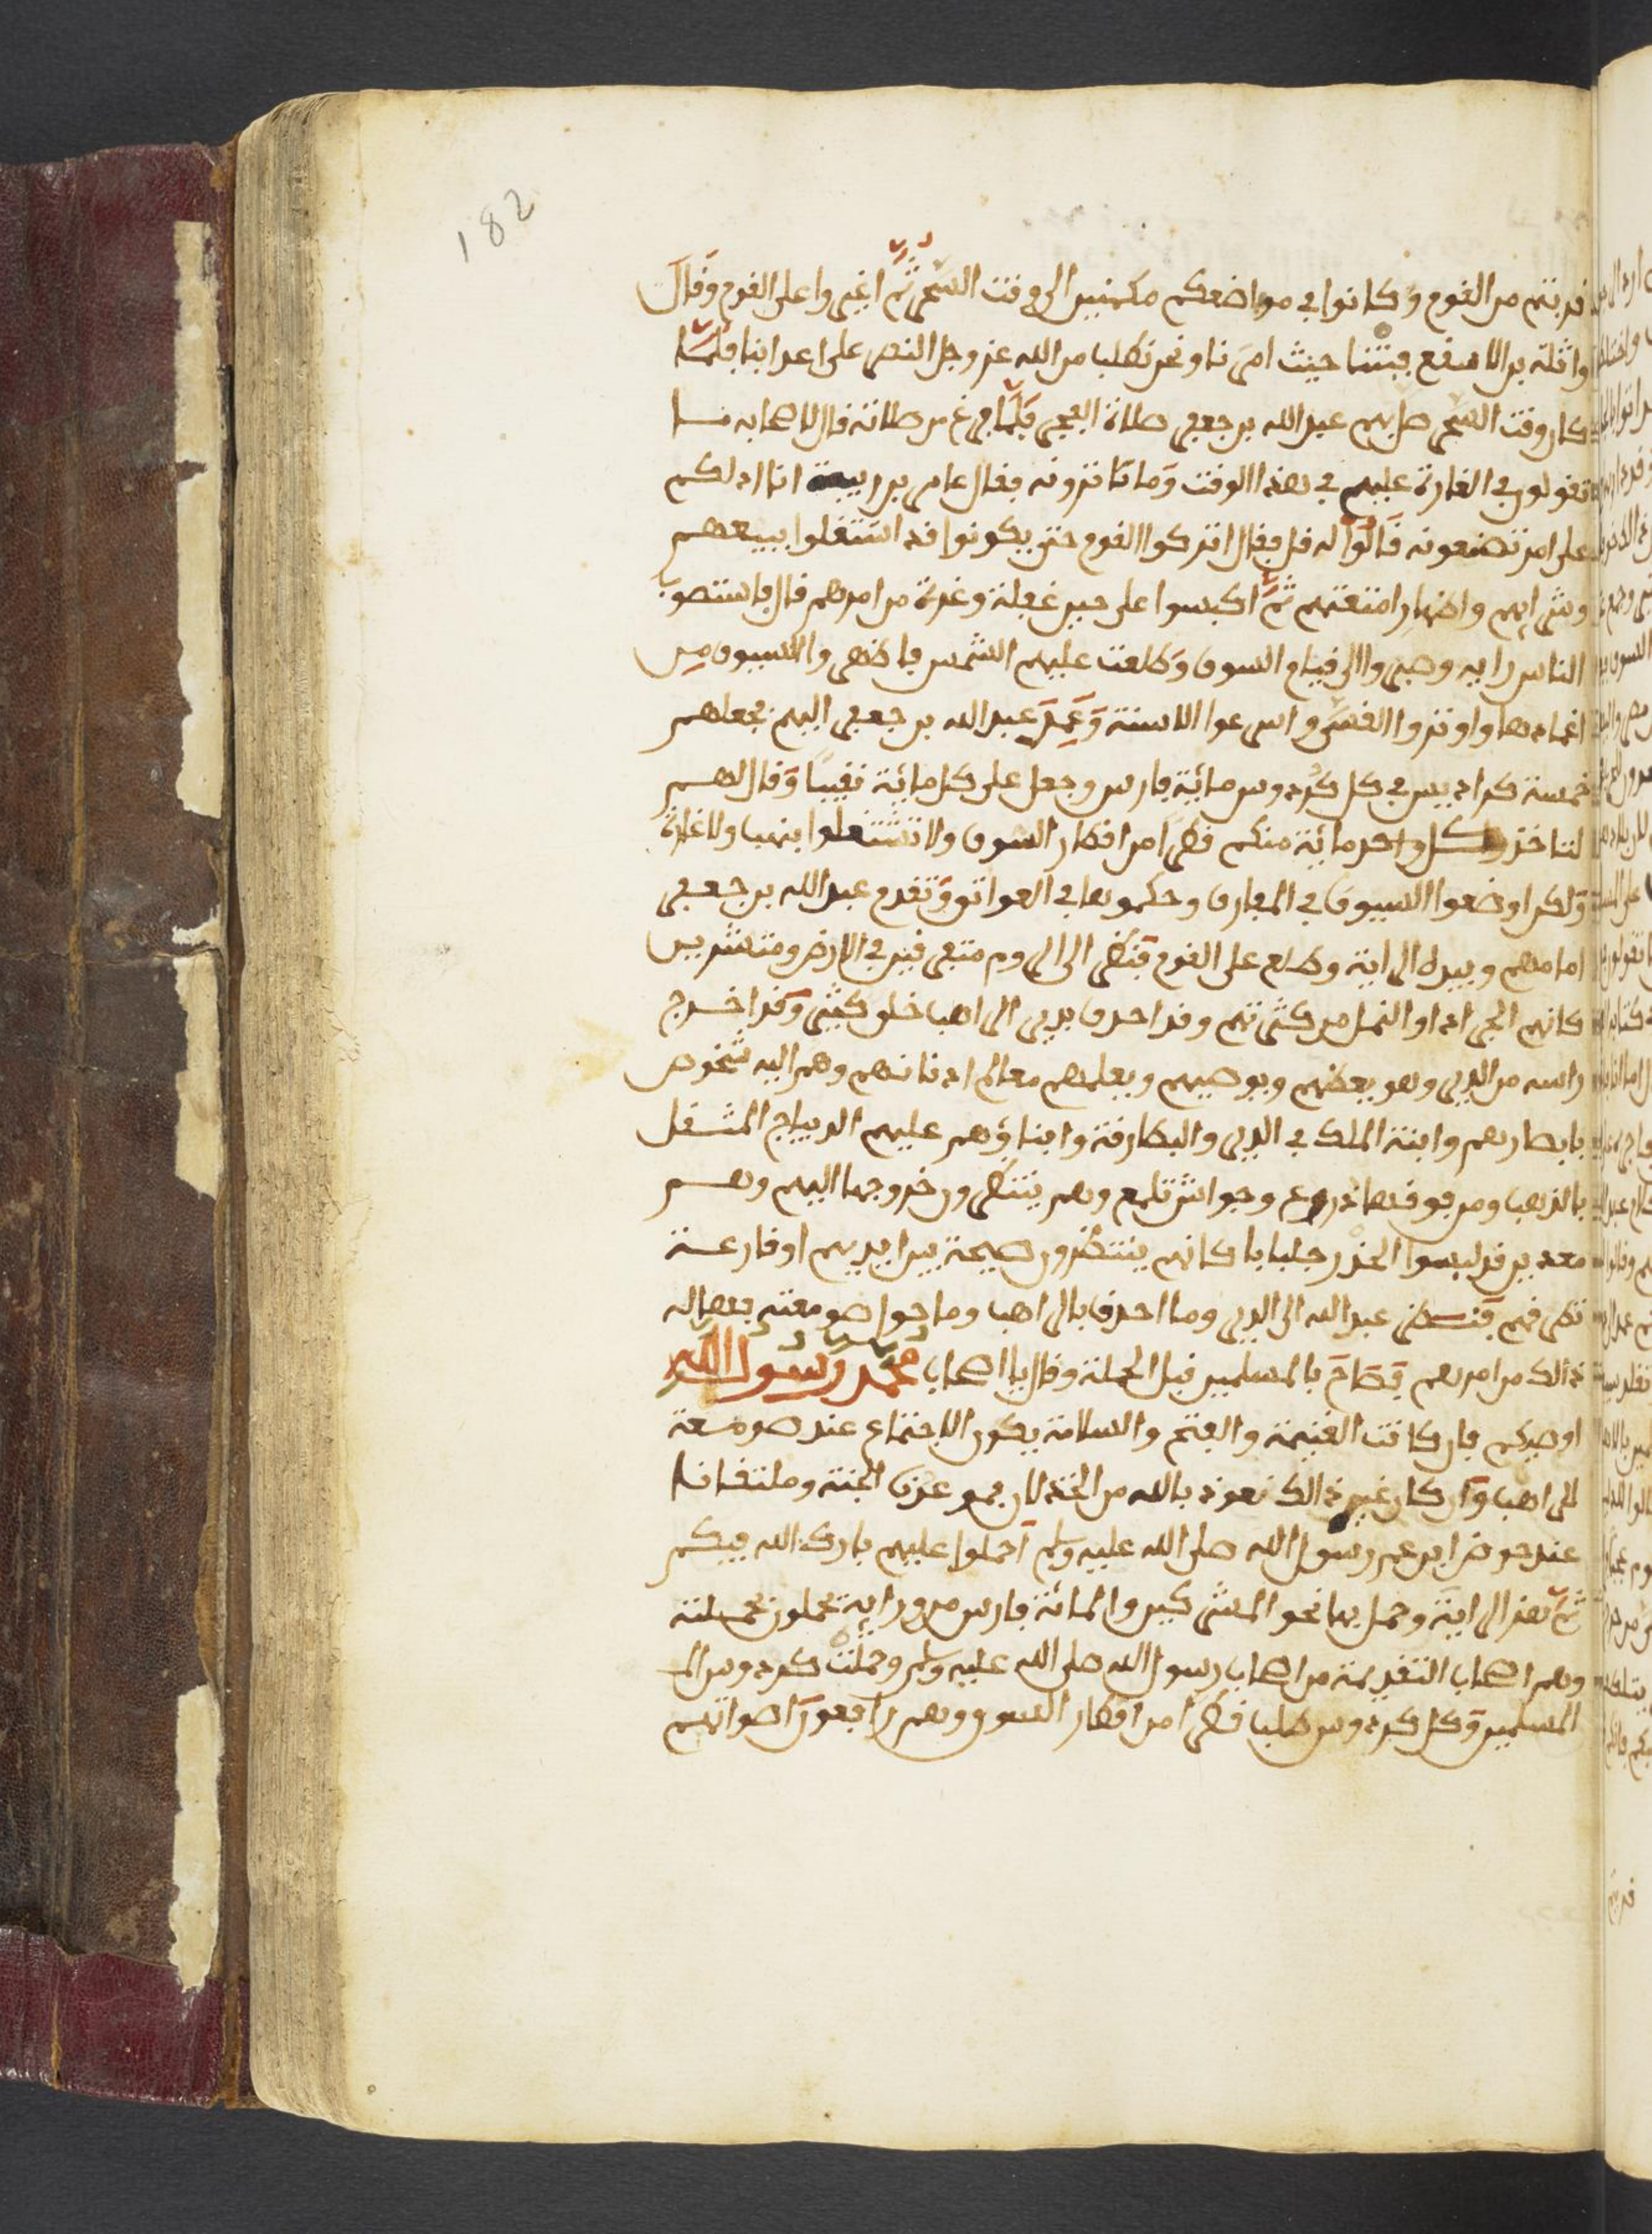 182
قربتم من القوم وكانوا في مواضعكم مكمنين الى وقت السحر ثم اغيروا على القوم وقال
واثلة بن الاسقع فبتنا حيث امرنا ونحن نطلب من الله عز وجل النصر على اعدائنا فلما
كان وقت السحر صلى بهم عبد الله بن جعفر صلاة الفجر فلما فرغ من صلاته قال لاصحابه ما
تقولون في الغارة عليهم في هذا الوقت وما تاتزونه فقال عامر بن ربيعة انا ادلكم
على امر تصنعونه قالوا له قل فقال اتركوا القوم حتى يكونوا قد اشتغلوا ببيعهم
وشرائهم واظهار امتعتهم ثم اكبسوا على حين غفلة وغرة من امرهم قال فاستصوب
الناس رايه وصبروا الى قيام السوق وطلعت عليهم الشمس فاظهروا السيوف من
اغمادها واوتروا القسي واسرعوا الاسنة وعمد عبد الله بن جعفر اليهم فجعلهم
خمسة كراديس في كل كردوس مائة فارس وجعل على كل مائة نقيبا وقال لهم
لتاخذ كل واحد مائة منكم قطرا من اقطار السوق ولا تشتغلوا بنهب ولا غارة
ولكن اوضعوا السيوف في المفارق وحكموها في العواتق وتقدم عبد الله بن جعفر
امامهم وبيده الراية وطلع على القوم فنظر الى الروم متفرقين في الارض ومنتشرين
كانهم الجراد او النمل من كثرتهم وقد احدق بدير الراهب خلق كثير وقد اخرج
راسه من الدير وهو يعظهم ويوصيهم ويعلمهم معالم ادنانهم وهم اليه شخوص
بابصارهم وابنة الملك في الدير والبطارقة وابناؤهم عليهم الديباج المثقل
بالذهب ومن فوقها دروع وجواشن تلمع وهم ينتظرون خروجها اليهم وهم
معدين قد لبسوا الخذر جلبابا كانهم ينتظرون صيحة بين ايديهم او قارعة
تطرقهم فنظر عبد الله الى الدير وما احدق بالراهب وما حول صومعته فهاله
ذالك من امرهم فصاح بالمسلمين قبل الحملة وقال يا اصحاب محمد رسول الله
اوصيكم فان كانت الغنيمة والفتح والسلامة يكون الاجتماع عند صومعة
الراهب وان كان غير ذالك نعوذ بالله من الخذلان فهو عدن الجنة وملتقانا
عند حوض ابن عم رسول الله صلى الله عليه وسلم احملوا عليهم بارك الله فيكم
ثم هز الراية وحمل بها نحو المشركين والمائة فارس من ورايه يحملون بحملته
وهم اصحاب التقدمة من اصحاب رسول الله صلى الله عليه وسلم وحملت كردوس الـ
المسلمين وكل كردوس طلب قطرا من اقطار السوق وهم رافعون اصواتهم